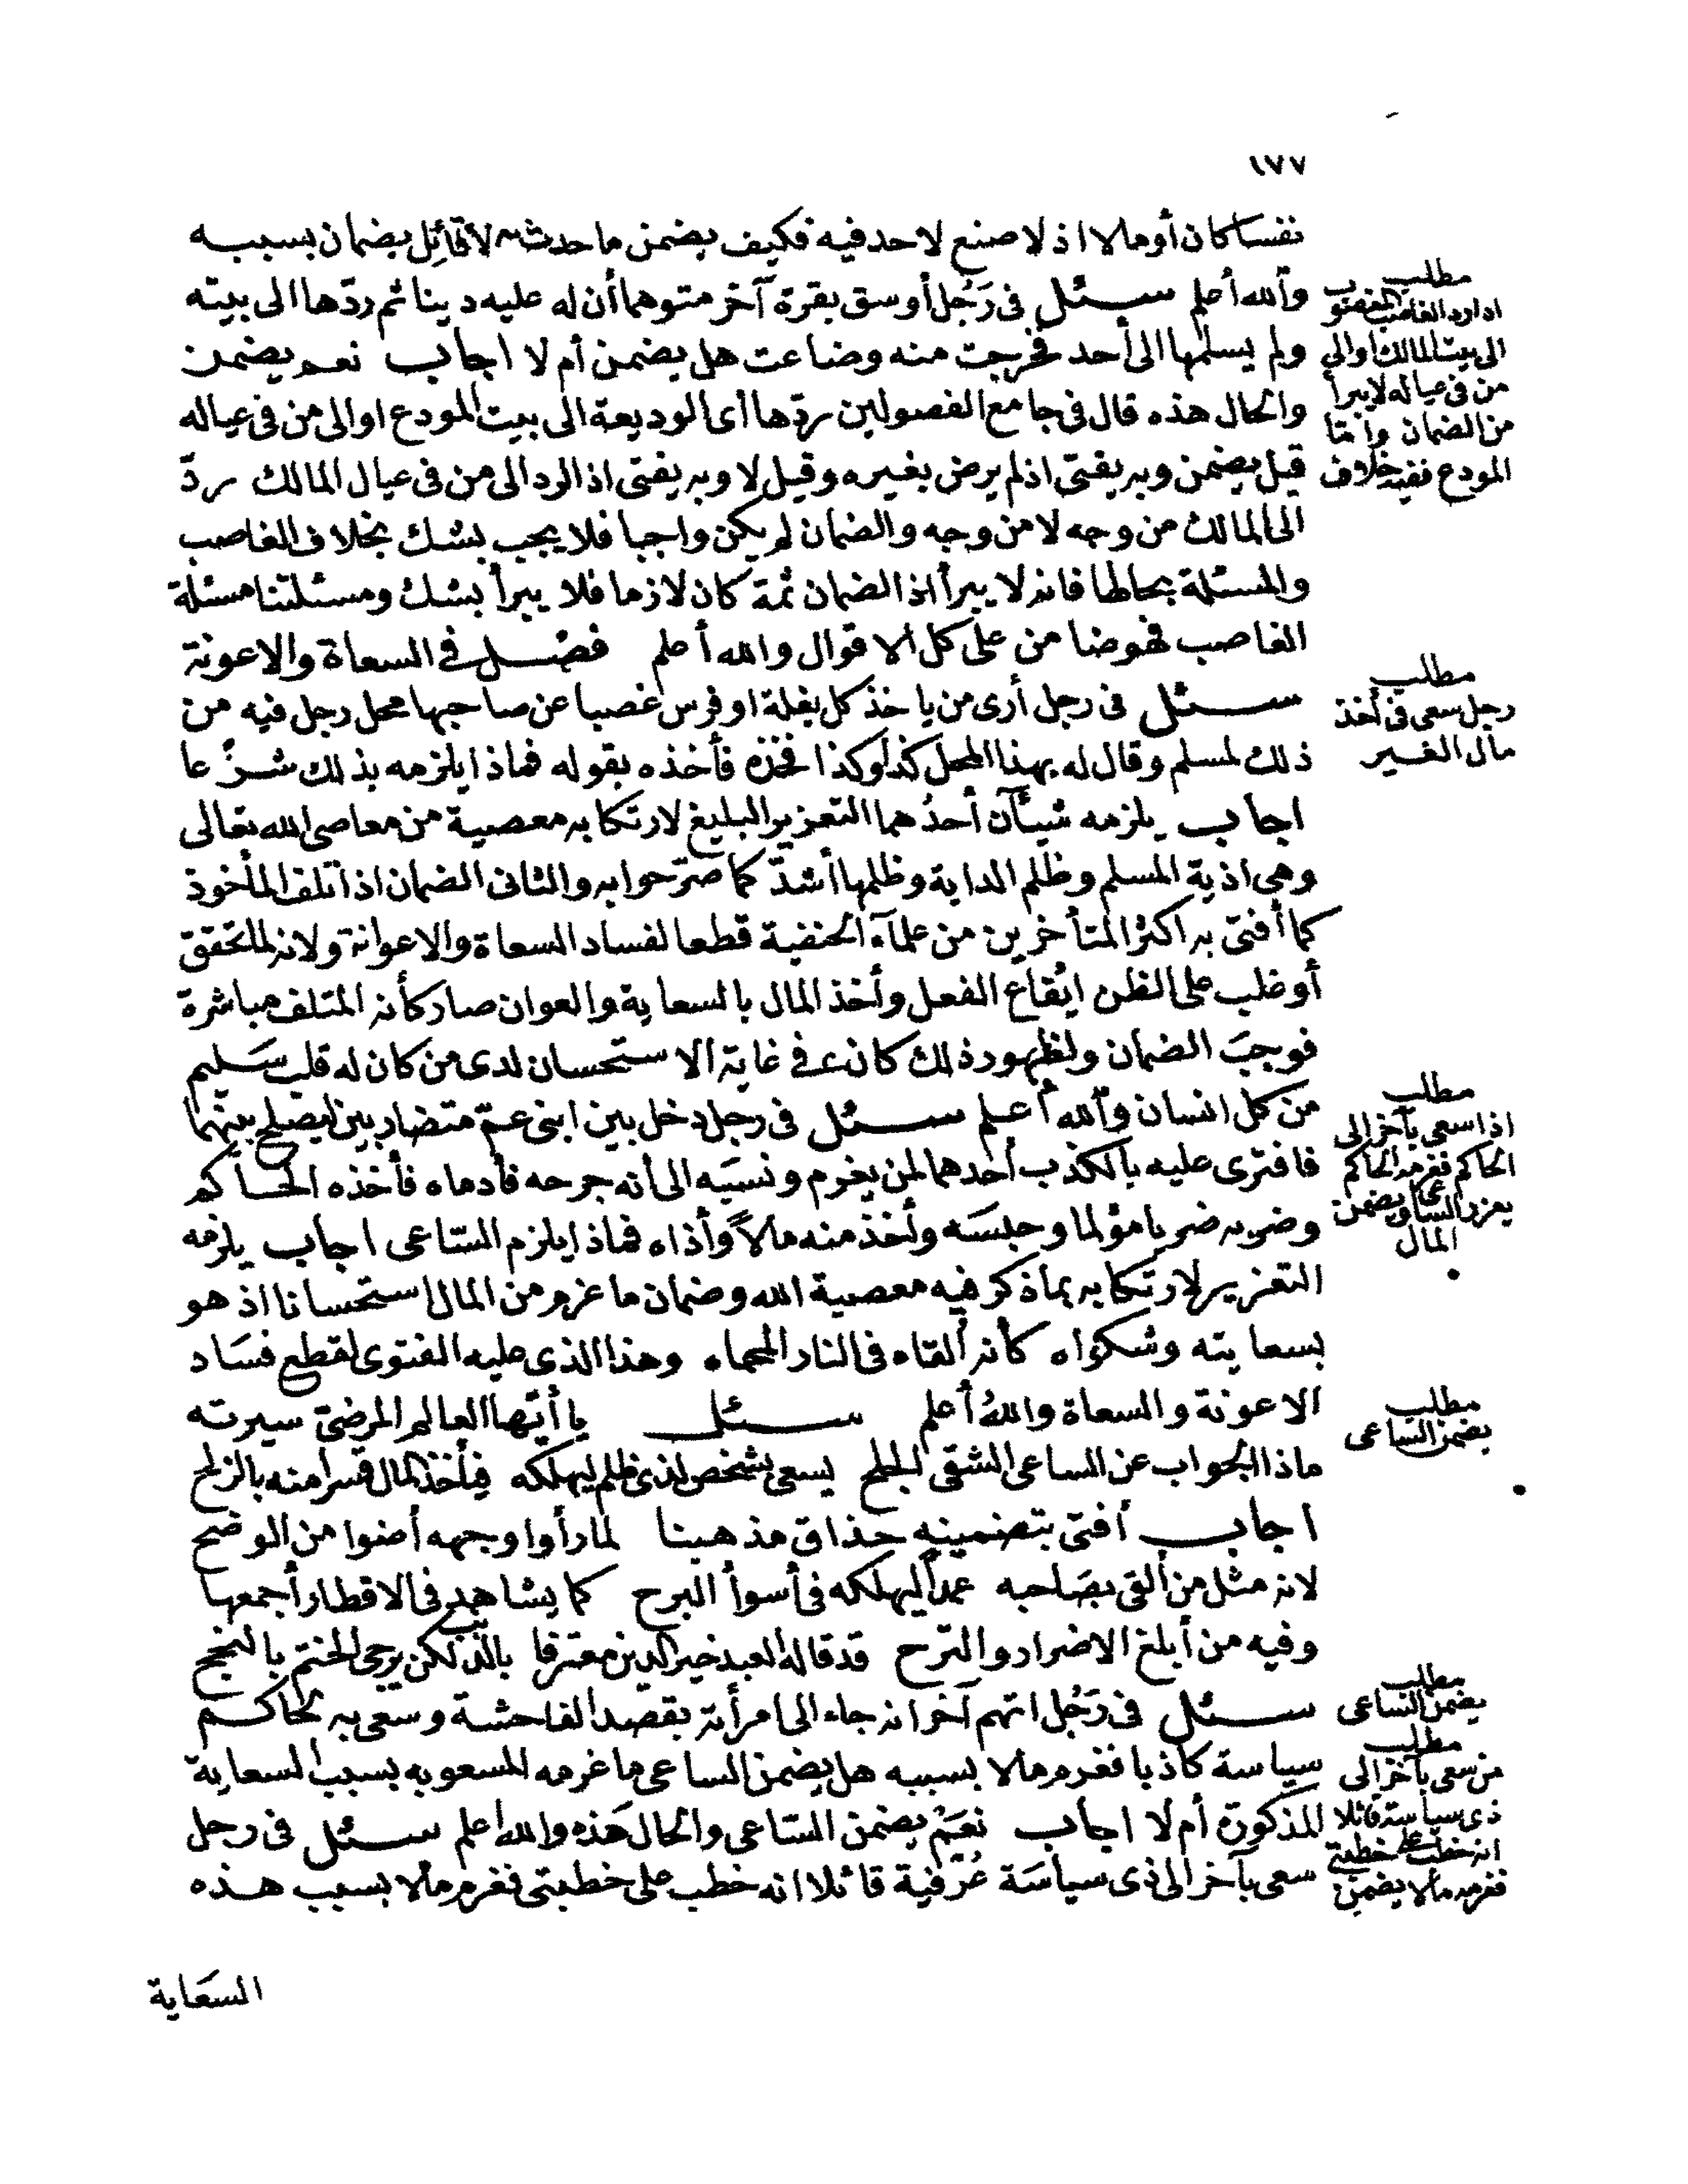 ١٧٧
نفسا كان أو مالا اذ لا صنع لاحد فيه فكيف يضمن ما حدث لا قائل بضمان بسببه
والله أعلم سئل فى رَجُل أوسق بقرة آخر متوهما أن له عليه دينا ثم ردّها الى بيته
ولم يسلمها الى أحد فخرجت منه وضاعت هل يضمن أم لا اجاب نعم يضمن
والحال هذه قال فى جامع الفصولين ردّها أى الوديعة الى بيت المودع او الى من فى عياله
قيل يضمن وبه يفتى اذ لم يرض بغيره وقيل لا وبه يفتى اذ الرد الى من فى عيال المالك ردّ
الى المالك من وجه لا من وجه والضمان لم يكن واجبا فلا يجب بشك بخلاف الغاصب
والمسئلة بحالها فانه لا يبرأ اذ الضمان ثمة كان لازما فلا يبرأ بشك ومسئلتنا مسئلة
الغاصب فهو ضامن على كل الاقوال والله أعلم فصل في السعاة والاعونة
سئل فى رجل أرى من ياخذ كل بغلة او فرس غصبا عن صاحبها محل رجل فيه من
ذلك لمسلم وقال له بهذا المحل كذا وكذا فخذه فأخذه بقوله فماذا يلزمه بذلك شرعا
اجاب يلزمه شيئآن أحدُهما التعزير البليغ لارتكابه معصية من معاصى الله تعالى
وهى اذية المسلم وظلم الدابة وظلمها أشدّ كما صرّحوا به والثانى الضمان اذا تلف المأخوذ
كما أفتى به اكثر المتأخرين من علمآء الحنفية قطعا لفساد السعاة والاعوانة ولانه لما تحقق
أو غلب على الظن ايقاع الفعل وأخذ المال بالسعاية والعوان صار كأنه المتلف مباشرة
فوجبَ الضمان ولظهور ذلك كان في غاية الاستحسان لدى من كان له قلب سَليم
من كل انسان والله أعلم سئل فى رجل دخل بين ابنى عمّ متضاربين ليصلح بينهما
فافترى عليه بالكذب أحدهما لمن يغرم ونسبَه الى أنه جرحه فأدماه فأخذه الحاكم
وضربه ضربا مؤلما وحبسَه وأخذ منه مالاً وأذاه فماذا يلزم السّاعى اجاب يلزمه
التعزير لارتكابه بما ذكر فيه معصية الله وضمان ما غرم من المال استحسانا اذ هو
بسعايته وشكواه كأنه ألقاه فى النار المحماء وهذا الذى عليه الفتوى لقطع فسَاد
الاعونة والسعاة واللهُ أعلم سئل يا أيّها العالم المرضىّ سيرته
ماذا الجواب عن الساعى الشقى الجلح يسعى بشخص لذى ظلم ليهلكه فيأخذ المال قسرا منه بالزلح
اجاب أفتى بتضمينه حذاق مذهبنا لما رأوا وجهه أضوا من الوضح
لانه مثل من ألقى بصَاحبه عمداً ليهلكه فى أسوأ البرح كما يشاهد فى الاقطار أجمعها
وفيه من أبلغ الاضرار والترح قد قاله العبد خير الدين معترفا بالذنب لكن يرجى الختم بالنجح
سئل فى رَجُل اتهم آخر انه جاء الى امرأته بقصد الفاحشة وسعى به لحاكم
سياسة كاذبا فغرم مالا بسببه هل يضمن الساعى ما غرمه المسعو به بسبب السعاية
المذكورة أم لا اجاب نعَمْ يضمن السّاعى والحال هَذه والله اعلم سئل فى رجل
سعى بآخر الى ذى سياسَة عُرفية قائلا انه خطب على خطبتى فغرم مالا بسبب هذه
السَعاية
مطلب
اذا رد الغاصب المغصوب
الى بيت المالك او الى
من فى عياله لا يبرأ
من الضمان واما
المودع ففيه خلاف
مطلب
رجل سعى فى أخذ
مال الغير
مطلب
اذا سعى بآخر الى
الحاكم فغرمه الحاكم
يعزر الساعى ويضمن
المال
مطلب
يضمن السّاعى
مطلب
يضمن الساعى
مطلب
من سعى بآخر الى
ذى سياسة قائلا
انه خطب على خطبتى
فغرمه مالا يضمن